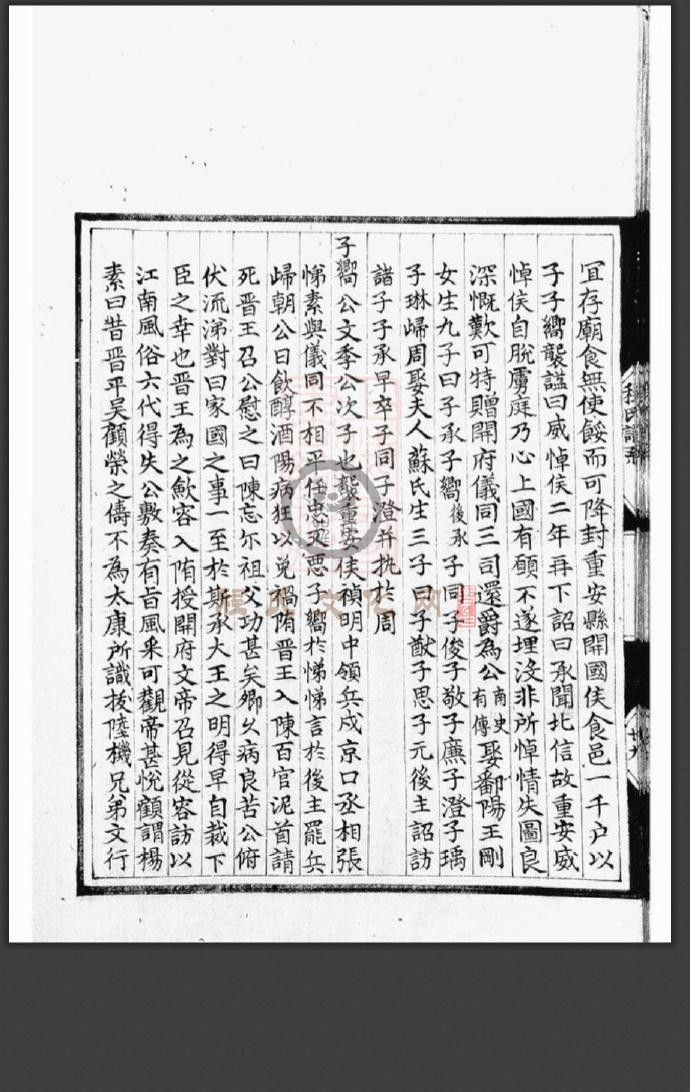 宜存廟食無使餒而可降封重安縣開國侯食邑一千户以
子子嚮襲謚曰威悼侯二年再下詔曰承聞北信故重安威
悼侯自脫虜庭乃心上國有願不遂埋沒非所悼情失圖良
深慨歎可特贈開府儀同三司還爵為公南史有傳娶鄱陽王剛
女生九子曰子承子嚮後承子同子俊子敬子廉子澄子瑀
子琳歸周娶夫人蘇氏生三子曰子猷子思子元後主詔訪
諸子子承早卒子同子澄并執於周
子嚮公文季公次子也襲重安侯禎明中領兵戍京口丞相張
悌素與儀同不相平任忠又惡子嚮於悌悌言於後主罷兵
歸朝公日飲醇酒陽病狂以免禍隋晋王入陳百官泥首請
死晋王召公慰之曰陳忘尔祖父功甚矣卿久病良苦公俯
伏流涕對曰家國之事一至於斯承大王之明得早自裁下
臣之幸也晋王為之歛容入隋授開府文帝召見從容訪以
江南風俗六代得失公敷奏有旨風采可觀帝甚悅顧謂楊
素曰昔晋平吴顧榮之儔不為太康所識拔陸機兄弟文行
程氏譜系
廿九
程氏文化网